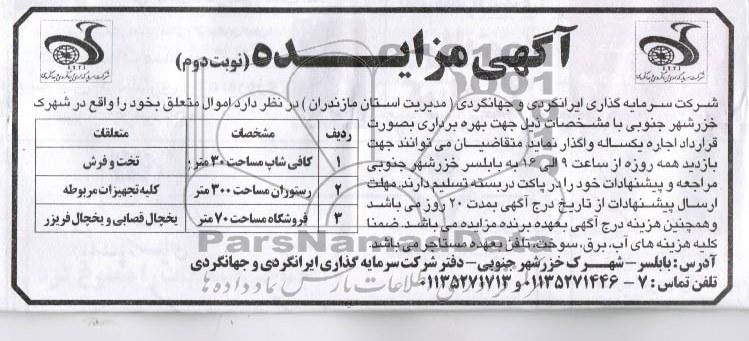 آگهی مزایده (نوبت دوم)
شرکت سرمایه گذاری ایرانگردی و جهانگردی ( مدیریت استان مازندران ) در نظر دارد اموال متعلق بخود را واقع در شهرک
خزرشهر جنوبی با مشخصات ذیل جهت بهره برداری بصورت
قرارداد اجاره یکساله واگذار نماید متقاضیان می توانند جهت
بازدید همه روزه از ساعت ۹ الی ۱۶ به بابلسر خزرشهر جنوبی
مراجعه و پیشنهادات خود را در پاکت دربسته تسلیم دارند. مهلت
ارسال پیشنهادات از تاریخ درج آگهی بمدت ۲۰ روز می باشد
وهمچنین هزینه درج آگهی بعهده برنده مزایده می باشد. ضمنا
کلیه هزینه های آب، برق، سوخت، تلفن بعهده مستاجر می باشد
ردیف مشخصات متعلقات
۱ کافی شاپ مساحت ۳۰ متر تخت و فرش
۲ رستوران مساحت ۳۰۰ متر کلیه تجهیزات مربوطه
۳ فروشگاه مساحت ۷۰ متر یخچال قصابی و یخچال فریزر
آدرس: بابلسر - شهرک خزرشهر جنوبی - دفتر شرکت سرمایه گذاری ایرانگردی و جهانگردی
تلفن تماس: ۷ - ۰۱۱۳۵۲۷۱۴۴۶ و ۰۱۱۳۵۲۷۱۷۱۳
ParsNamadData